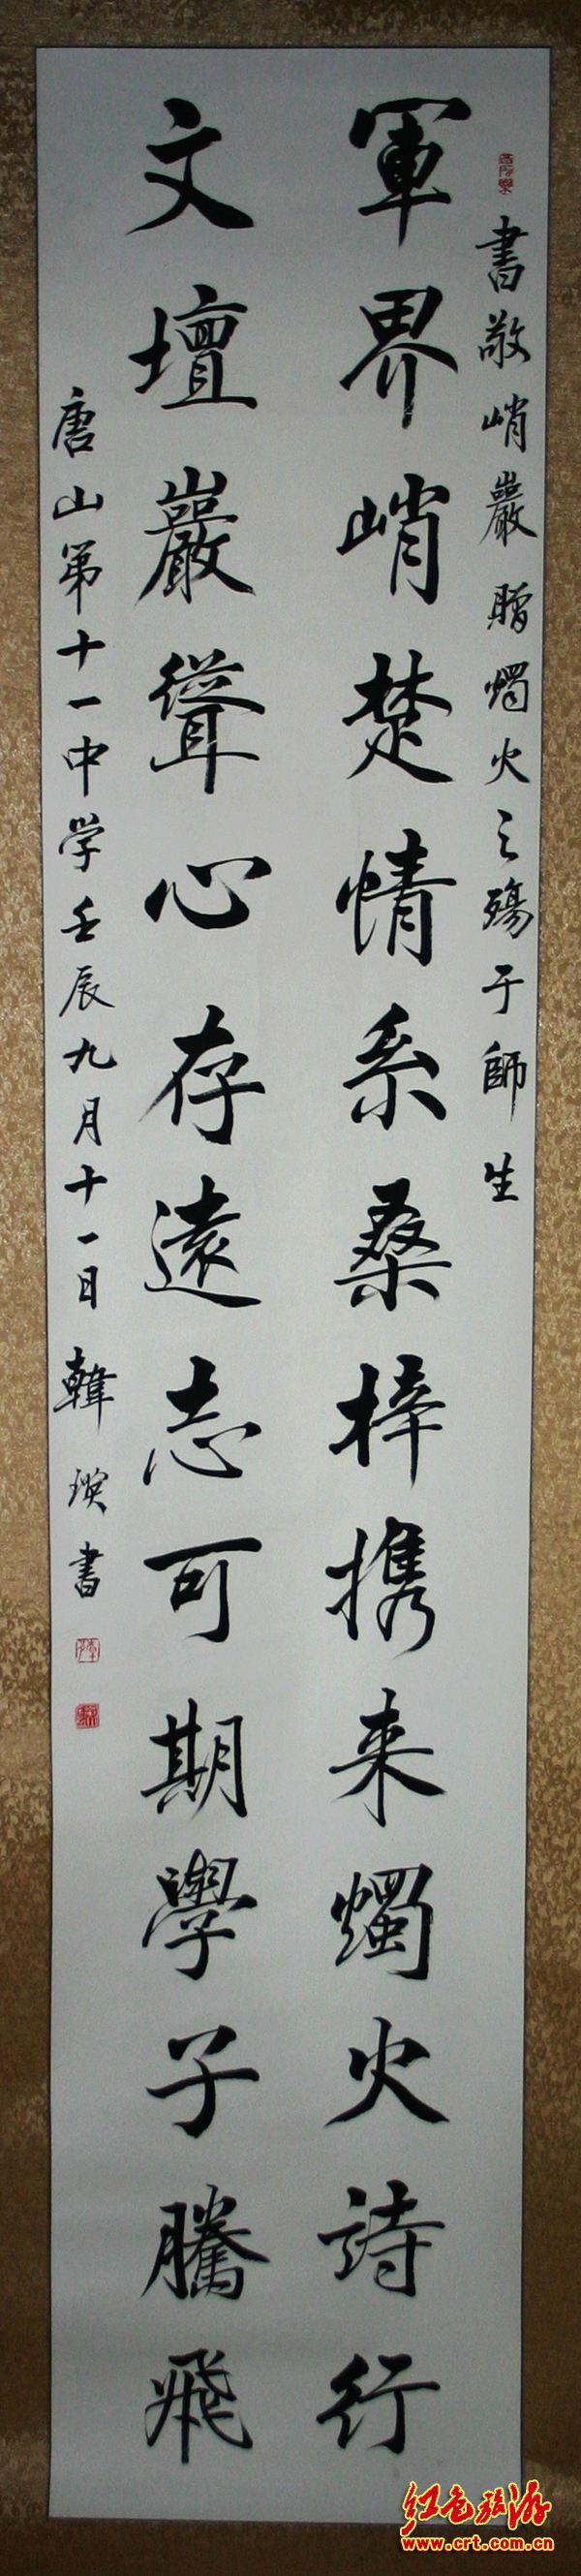 書敬峭巖贈燭火之殤于師生
軍界峭楚情系桑梓携来燭火詩行
文壇巖聳心存遠志可期學子騰飛
唐山第十一中学壬辰九月十一日韓瑛書
红色旅游
www.crt.com.cn